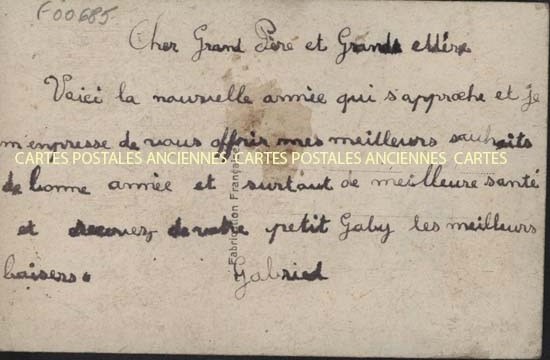 F00685
Cher Grand Père et Grande Mère
Voici la nouvelle année qui s'approche et je
m'empresse de vous offrir mes meilleurs souhaits
CARTES POSTALES ANCIENNES CARTES POSTALES ANCIENNES CARTES
de bonne année et surtout de meilleure santé
et recevez de votre petit Gaby les meilleurs
baisers.
Gabriel
Fabrication Française